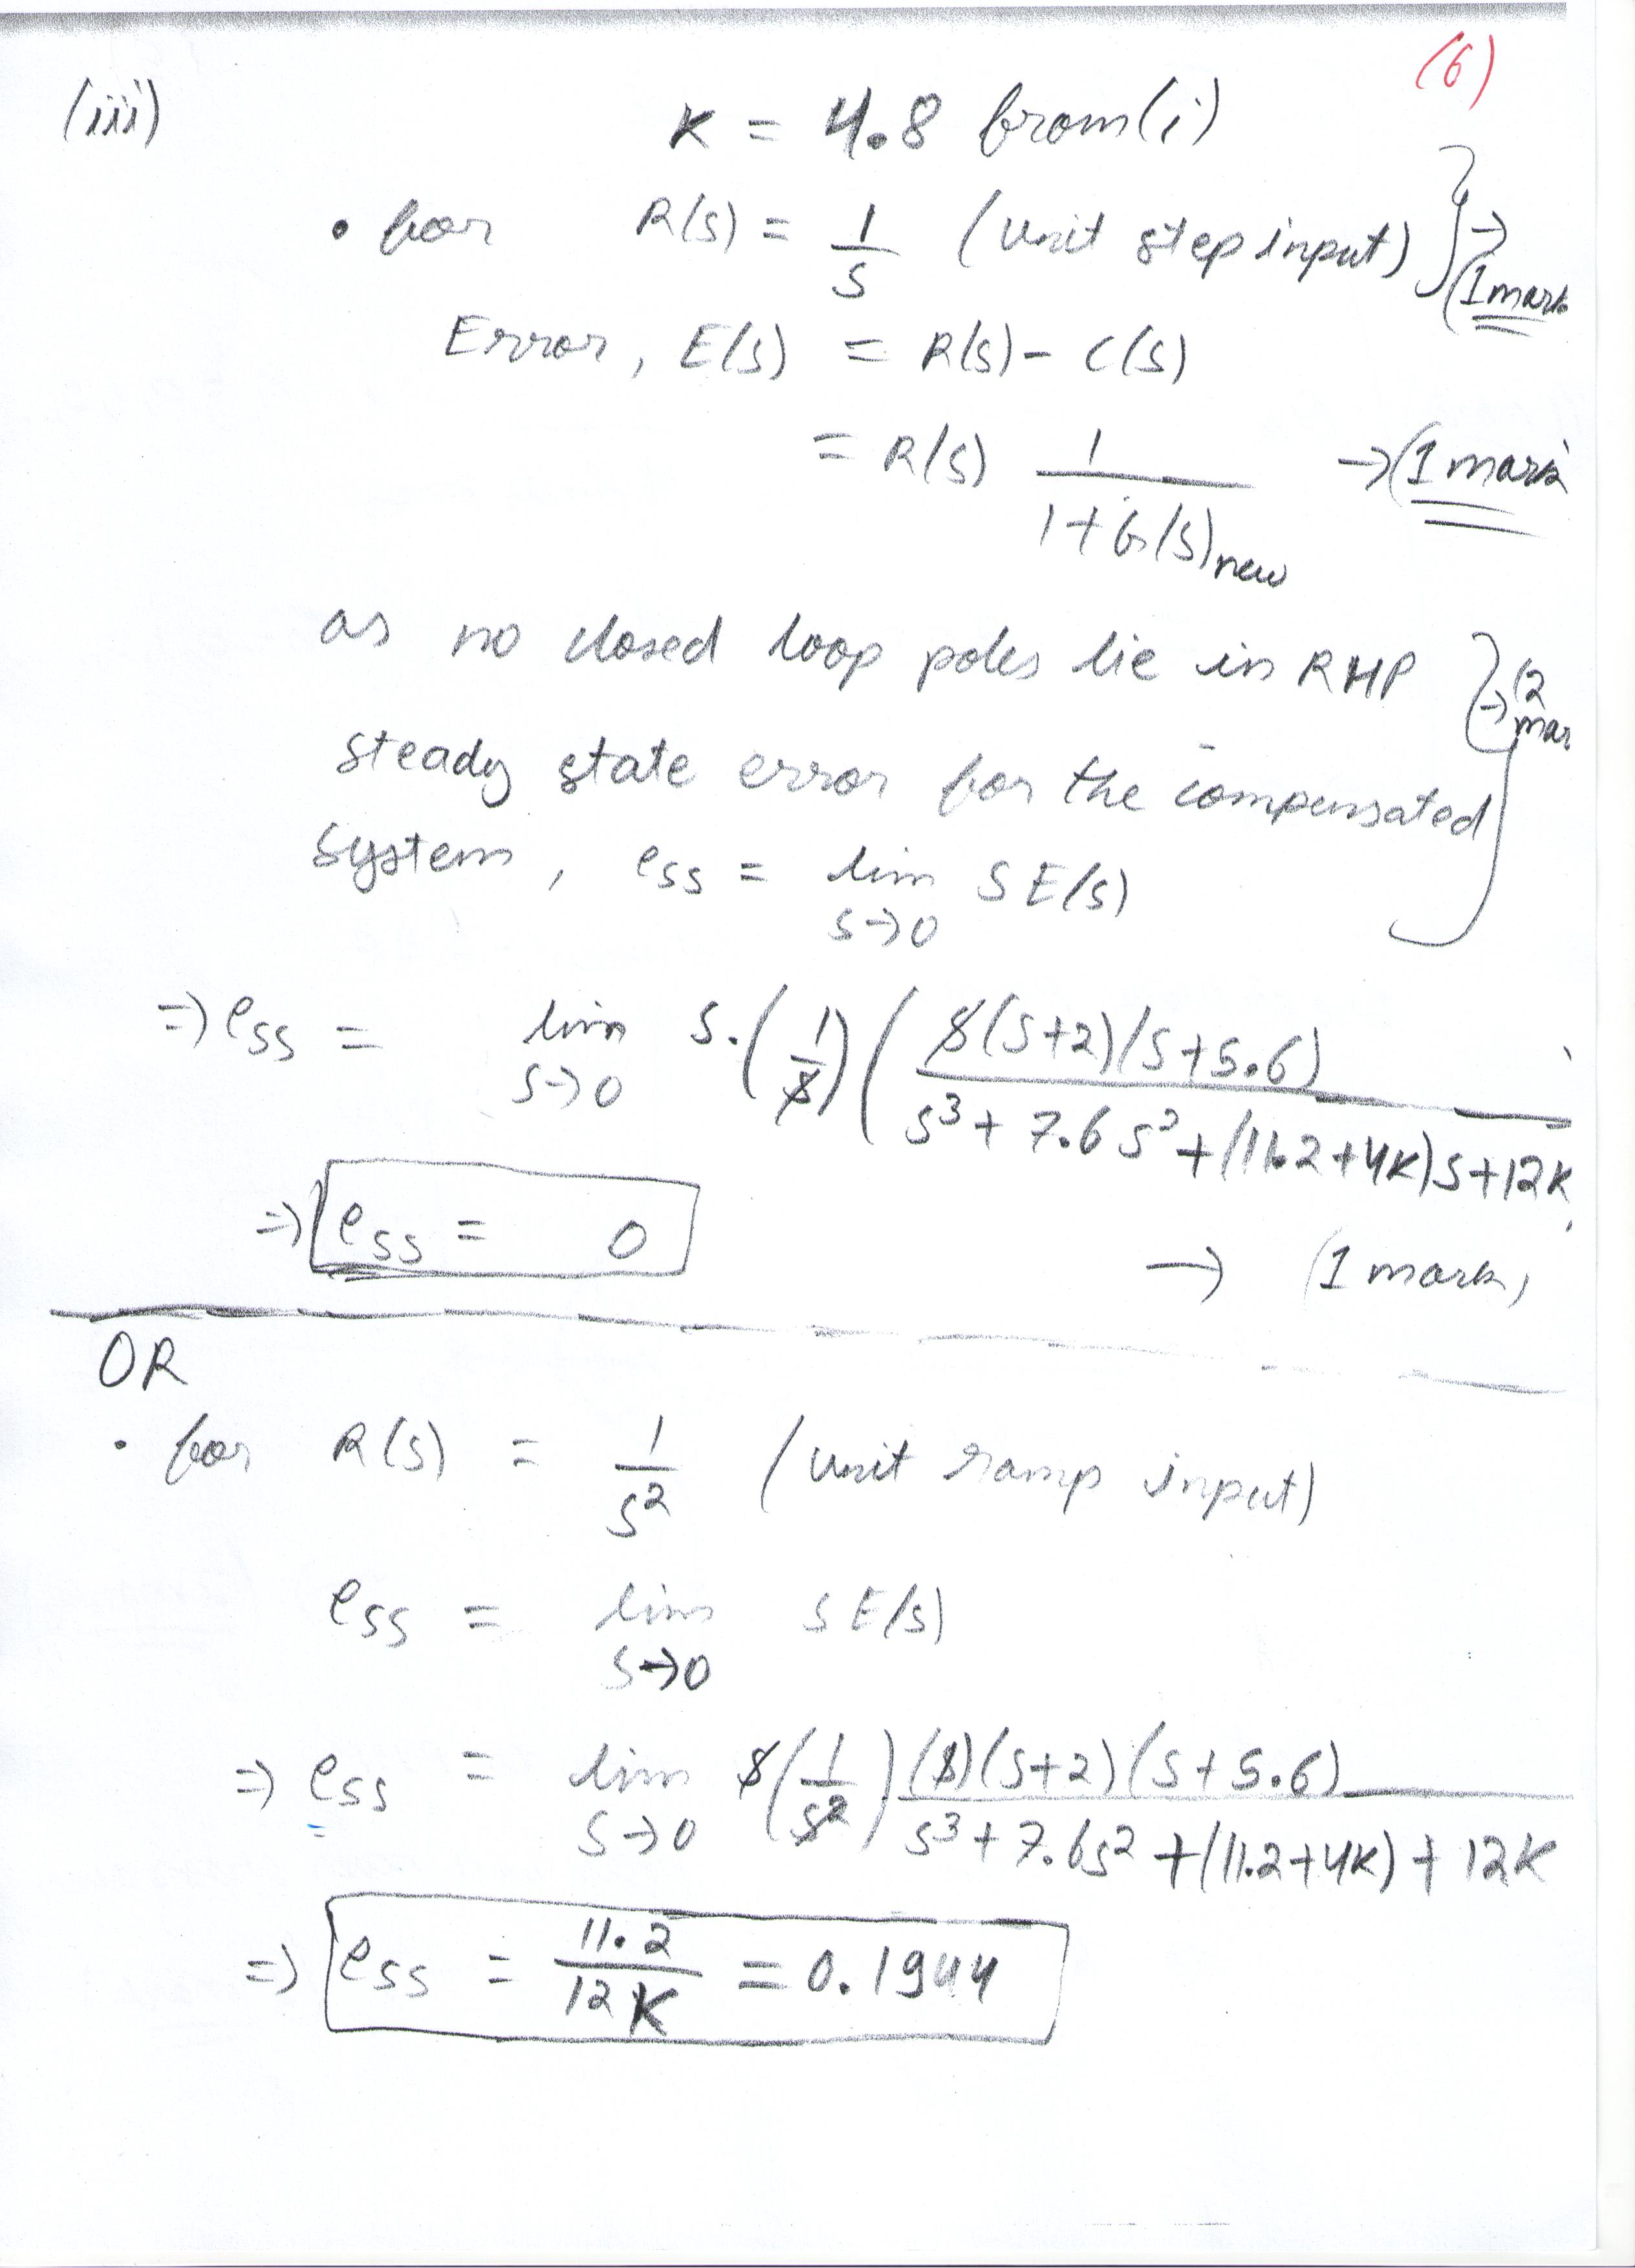 (6)
(iii) K = 4.8 from (i)
• for R(s) = 1/s (unit step input) } → (1 mark
Error, E(s) = R(s) - C(s)
= R(s) 1/(1+G(s)new) → (1 mark
as no closed loop poles lie in RHP } → (2 mar
steady state error for the compensated
system, ess = lim s→0 S E(s)
=) ess = lim s→0 s.(1/s)(s(s+2)(s+5.6)/(s³+7.6s²+(11.2+4K)s+12K
=) ess = 0 → (1 mark)
OR
• for R(s) = 1/s² (unit ramp input)
ess = lim s→0 s E(s)
=) ess = lim s→0 s(1/s²) (s)(s+2)(s+5.6)/(s³+7.6s²+(11.2+4K)+12K
=) ess = 11.2/12K = 0.1944